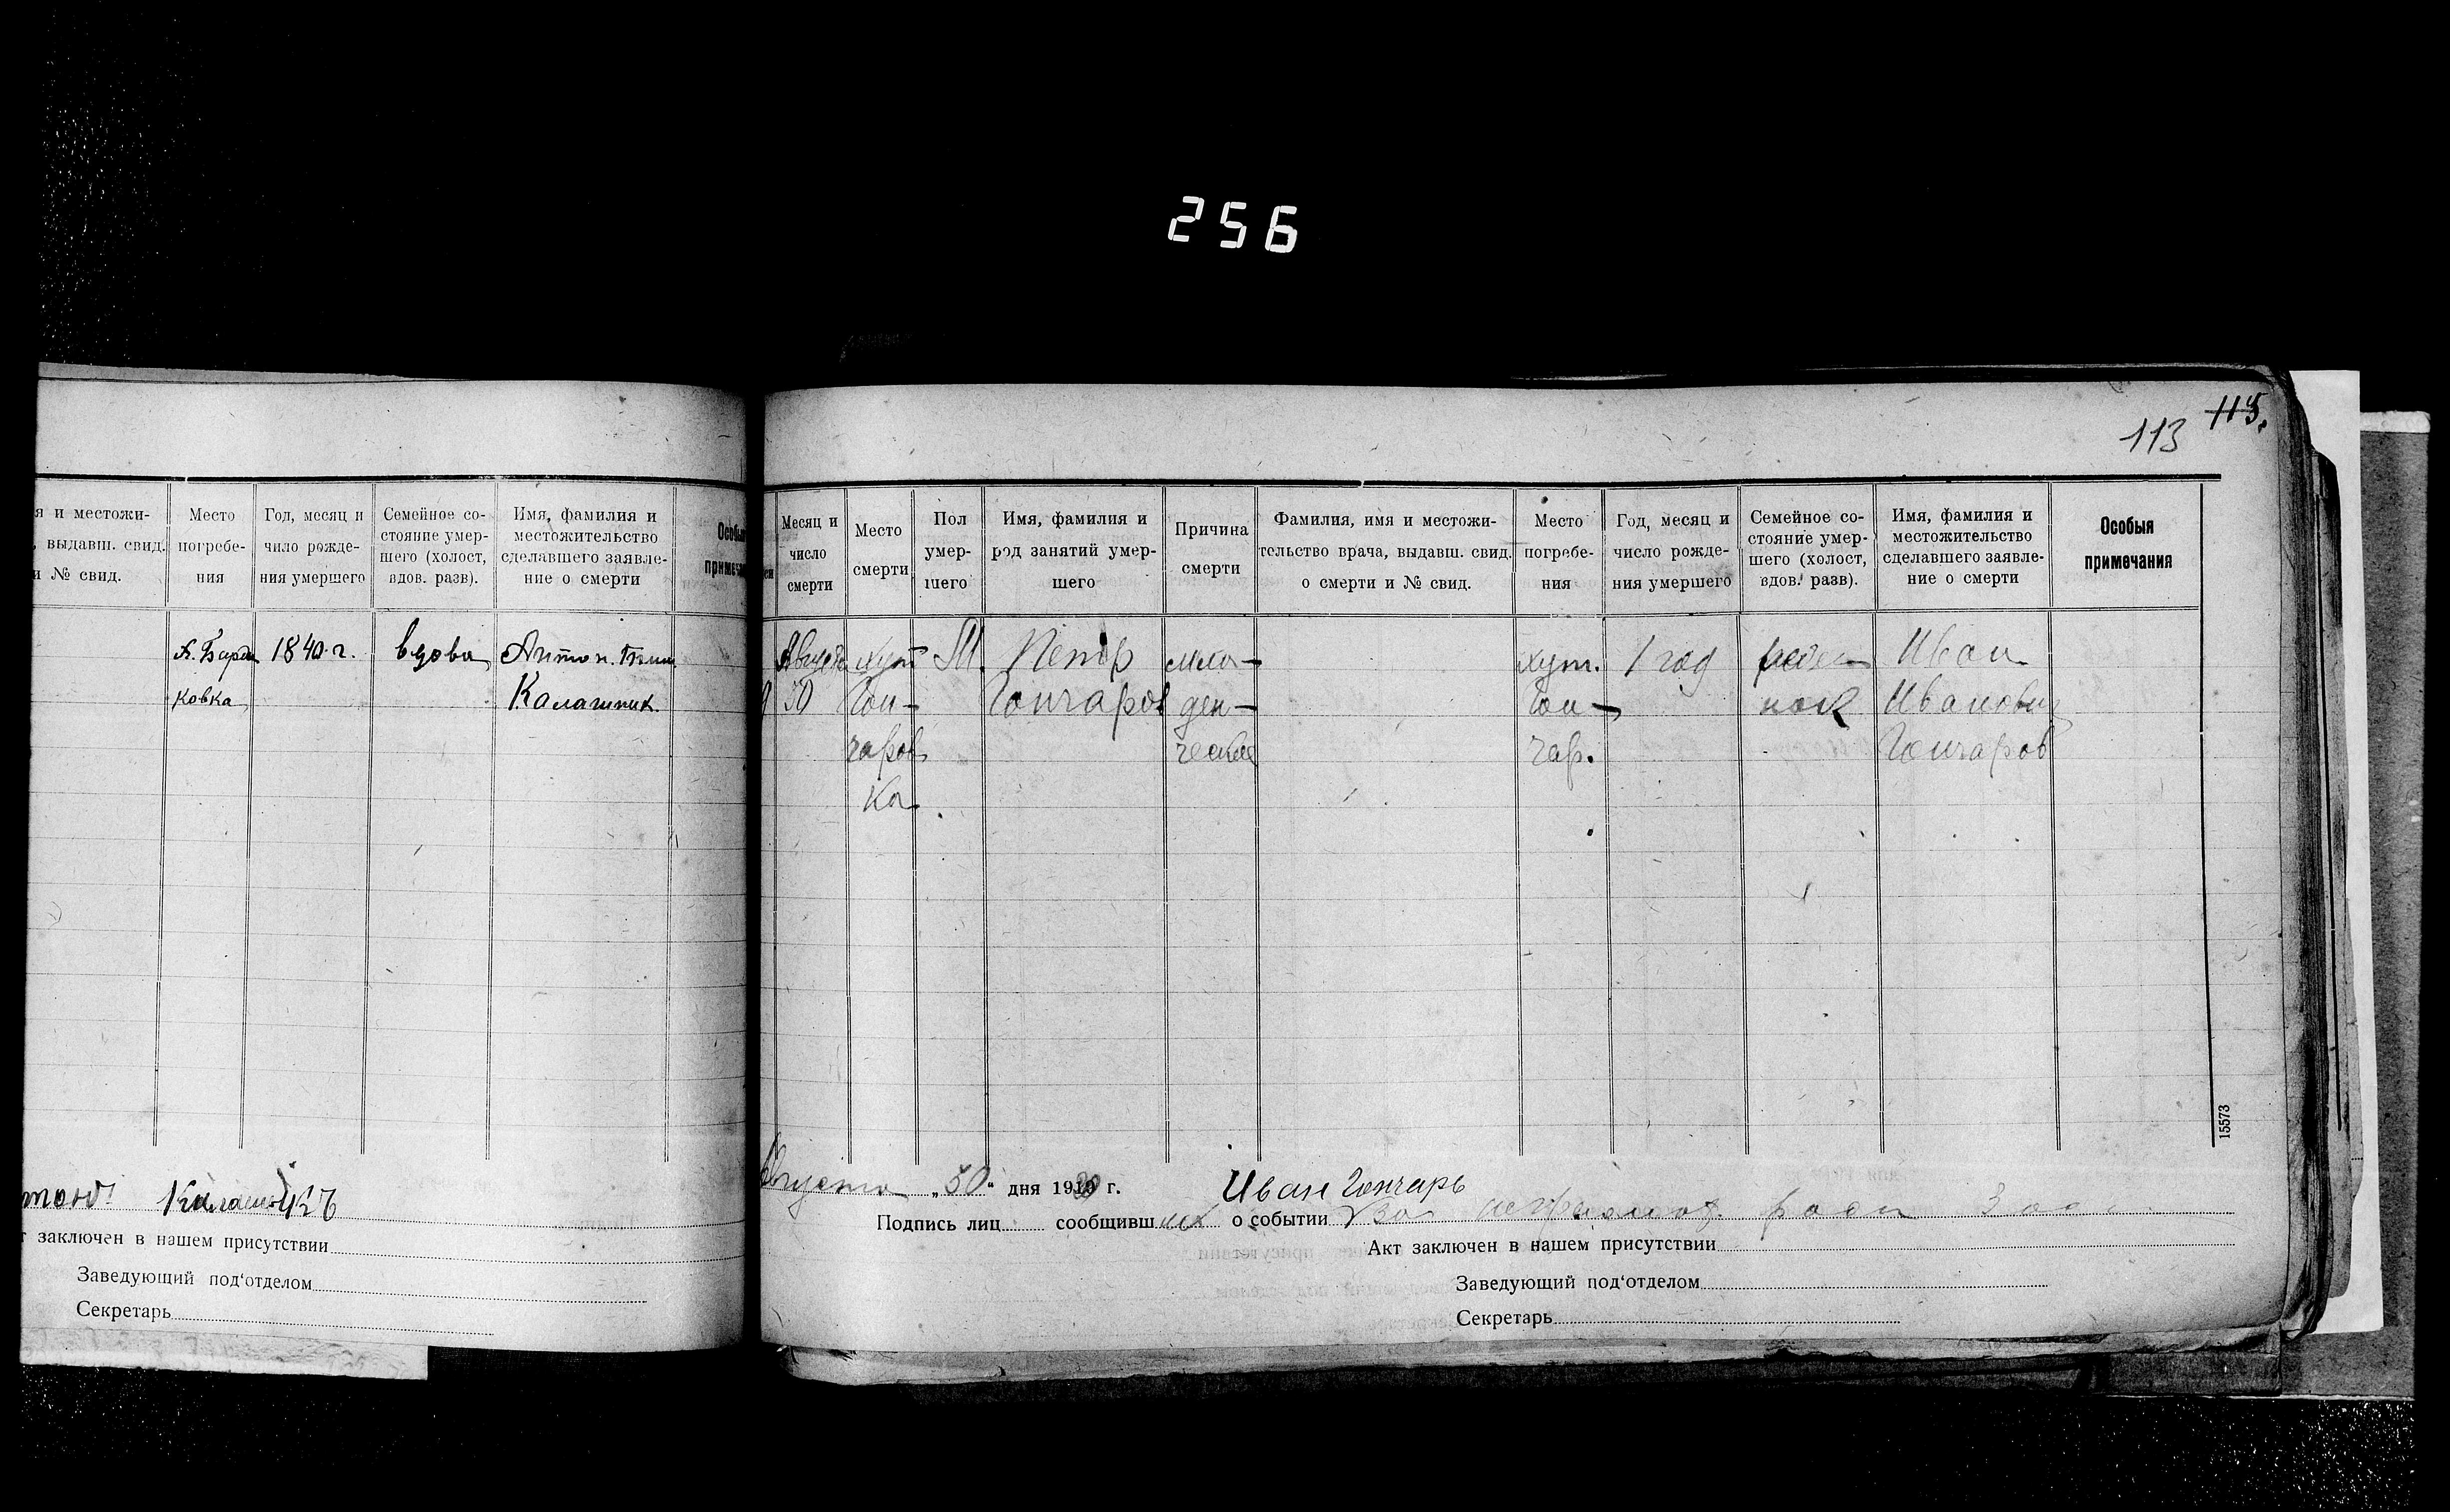 256
я и местожи-
, выдавш. свид.
и № свид.
Место
погребе-
ния
Год, месяц и
число рожде-
ния умершего
Семейное со-
стояние умер-
шего (холост,
вдов. разв).
Имя, фамилия и
местожительство
сделавшего заявле-
ние о смерти
Особыя
примеча
ковка
1840 г.
вдова
Антон.
Калашник
Калашникъ
т заключен в нашем присутствии
Заведующий под'отделом
Секретарь
115.
113
Месяц и
число
смерти
Место
смерти
Пол
умер-
шего
Имя, фамилия и
род занятий умер-
шего
Причина
смерти
Фамилия, имя и местожи-
тельство врача, выдавш. свид.
о смерти и № свид.
Место
погребе-
ния
Год, месяц и
число рожде-
ния умершего
Семейное со-
стояние умер-
шего (холост,
вдов. разв).
Имя, фамилия и
местожительство
сделавшего заявле-
ние о смерти
Особыя
примечания
Августа
30
хут
Гон-
чаров
ка
М.
Петр
Гончаров
мла-
ден-
ческая
хут.
Гон-
чар.
1 год
ребе-
нок
Иван
Иванович
Гончаров
15573
Августа „30“ дня 1920 г.
Иван Гончарь
Подпись лиц сообщивших о событии За
Акт заключен в нашем присутствии
Заведующий под'отделом
Секретарь